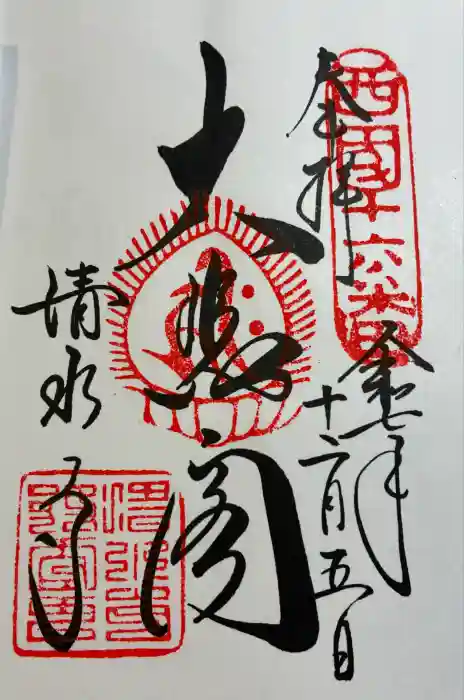 奉拝
西国十六番
令七年
十二月五日
大悲閣
清水寺